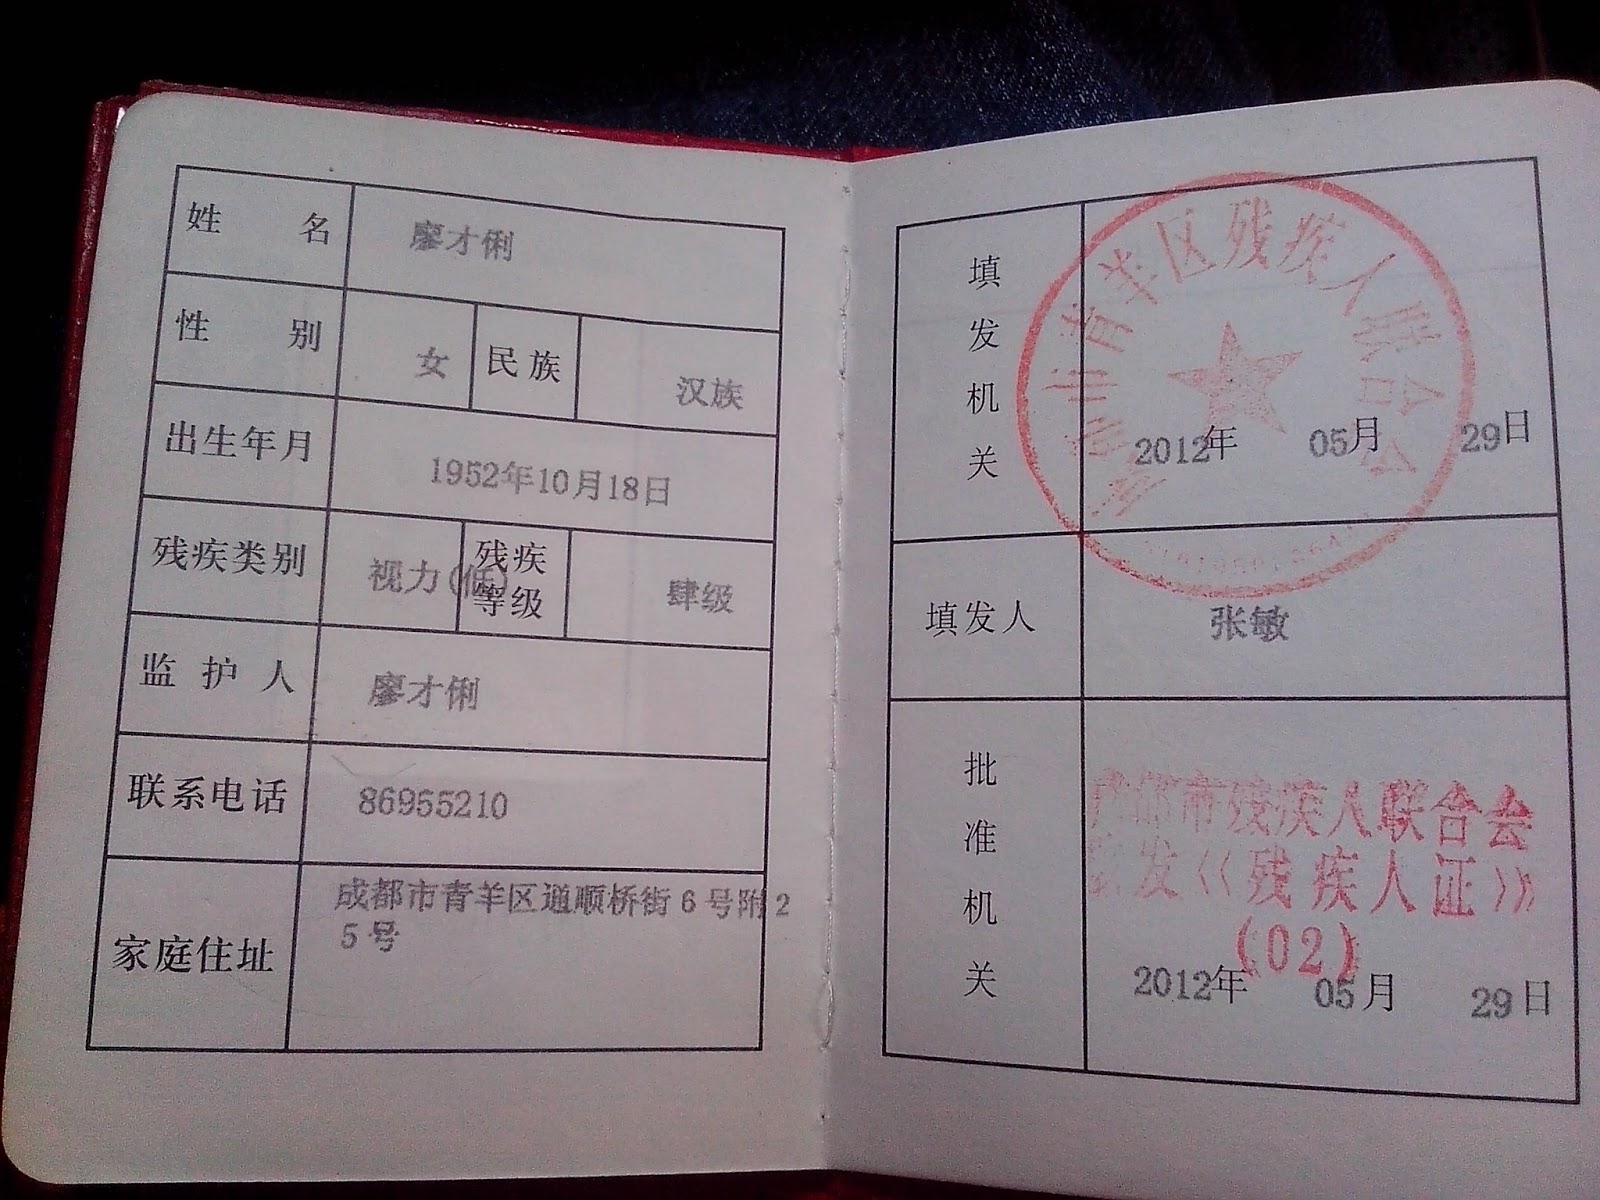 姓名 廖才俐
性别 女 民族 汉族
出生年月 1952年10月18日
残疾类别 视力(低) 残疾等级 肆级
监护人 廖才俐
联系电话 86955210
家庭住址 成都市青羊区通顺桥街6号附2
5号
填发机关
成都市青羊区残疾人联合会
2012年 05月 29日
填发人 张敏
批准机关
成都市残疾人联合会
发《残疾人证》
(02)
2012年 05月 29日